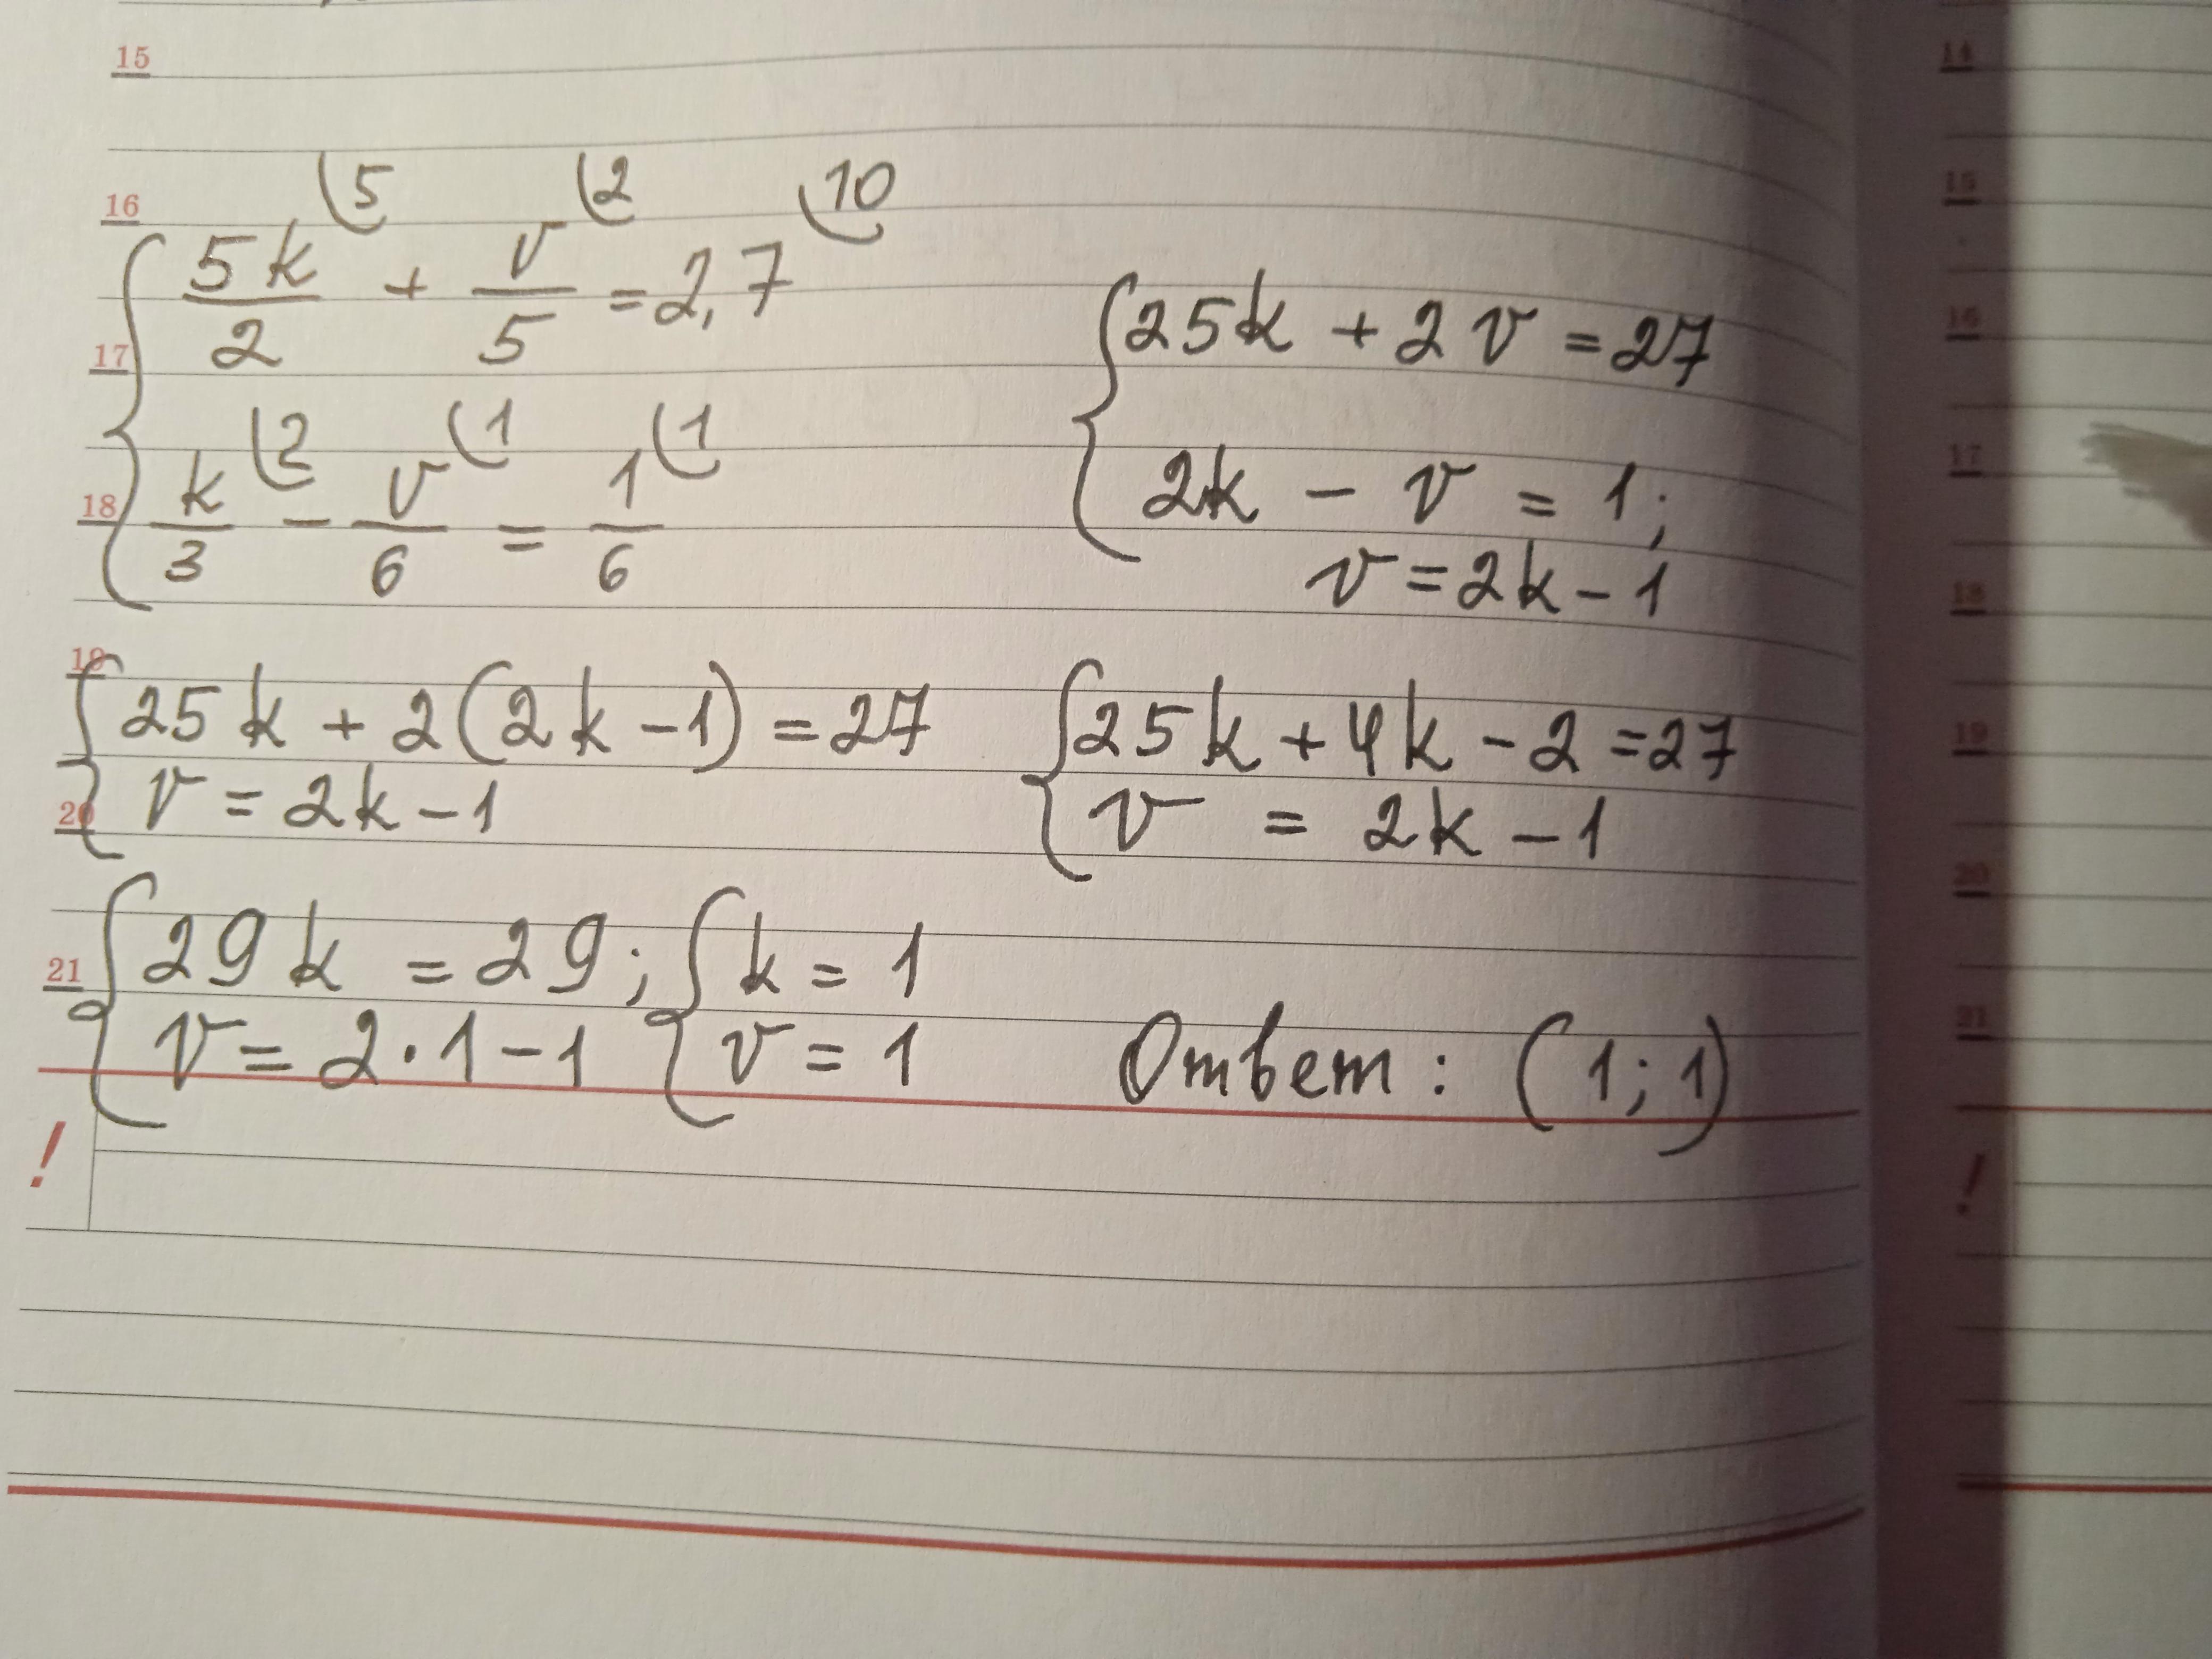 15
16
5 2 10
5k/2 + v/5 = 2,7
17
2 1 1
18 k/3 - v/6 = 1/6
25k + 2v = 27
2k - v = 1;
v = 2k - 1
19
25k + 2(2k - 1) = 27
20 v = 2k - 1
25k + 4k - 2 = 27
v = 2k - 1
21 29k = 29; k = 1
v = 2 · 1 - 1 v = 1
Ответ: (1; 1)
!
14
15
16
17
18
19
20
21
!